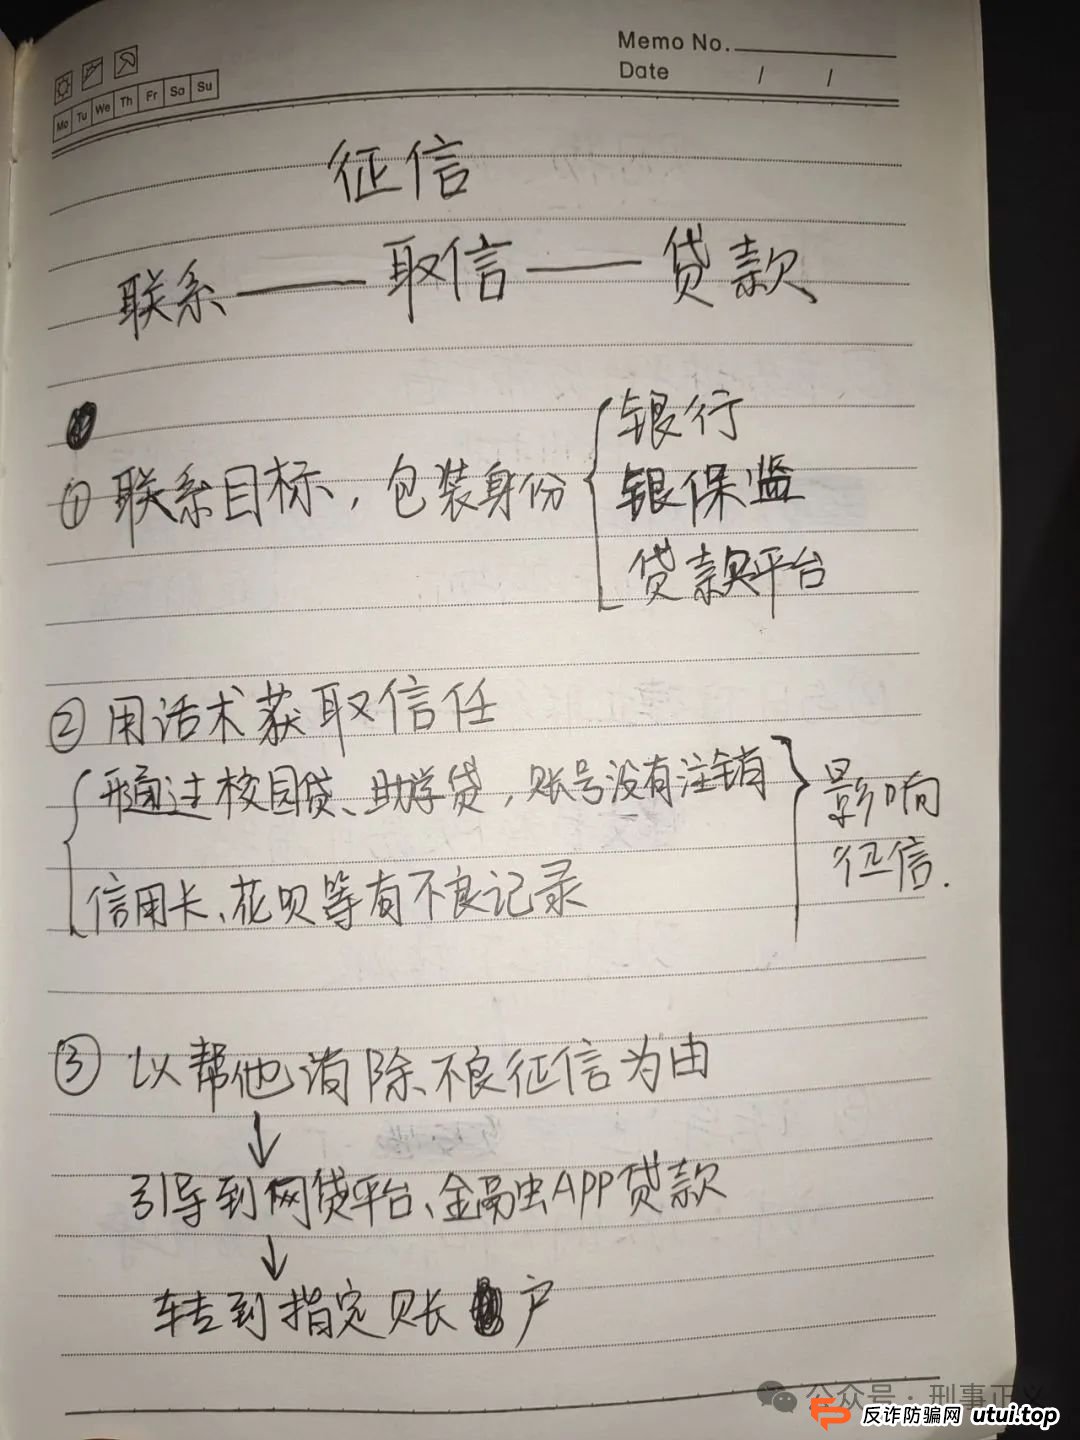 Memo No.
Date / /
Mo Tu We Th Fr Sa Su
征信
联系——取信——贷款
① 联系目标，包装身份
银行
银保监
贷款平台
② 用话术获取信任
开通过校园贷、助学贷，账号没有注销
信用卡、花呗等有不良记录
影响
征信.
③ 以帮他消除不良征信为由
↓
引导到网贷平台、金融APP贷款
↓
转到指定账户
公众号·刑事正义
反诈防骗网 utui.top